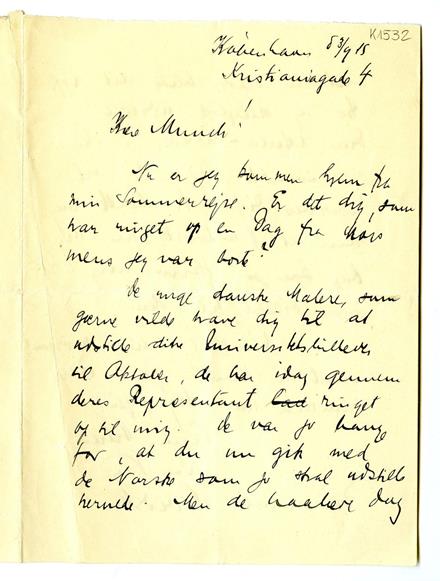 K1532
København Ø 3/9 15
Kristianiagade 4
Kære Munch!
Nu er jeg kommen hjem fra
min Sommerrejse. Er det dig, som
har ringet op en Dag fra
mens jeg var borte?
De unge danske Malere, som
gærne vilde have dig til at
udstille dine Universitetsbilleder
til Oktober, de har idag gennem
deres Repræsentant lad ringet
op til mig. De var jo bange
for, at du nu gik med
de Norske som jo skal udstille
hernede. Men de haaber dog